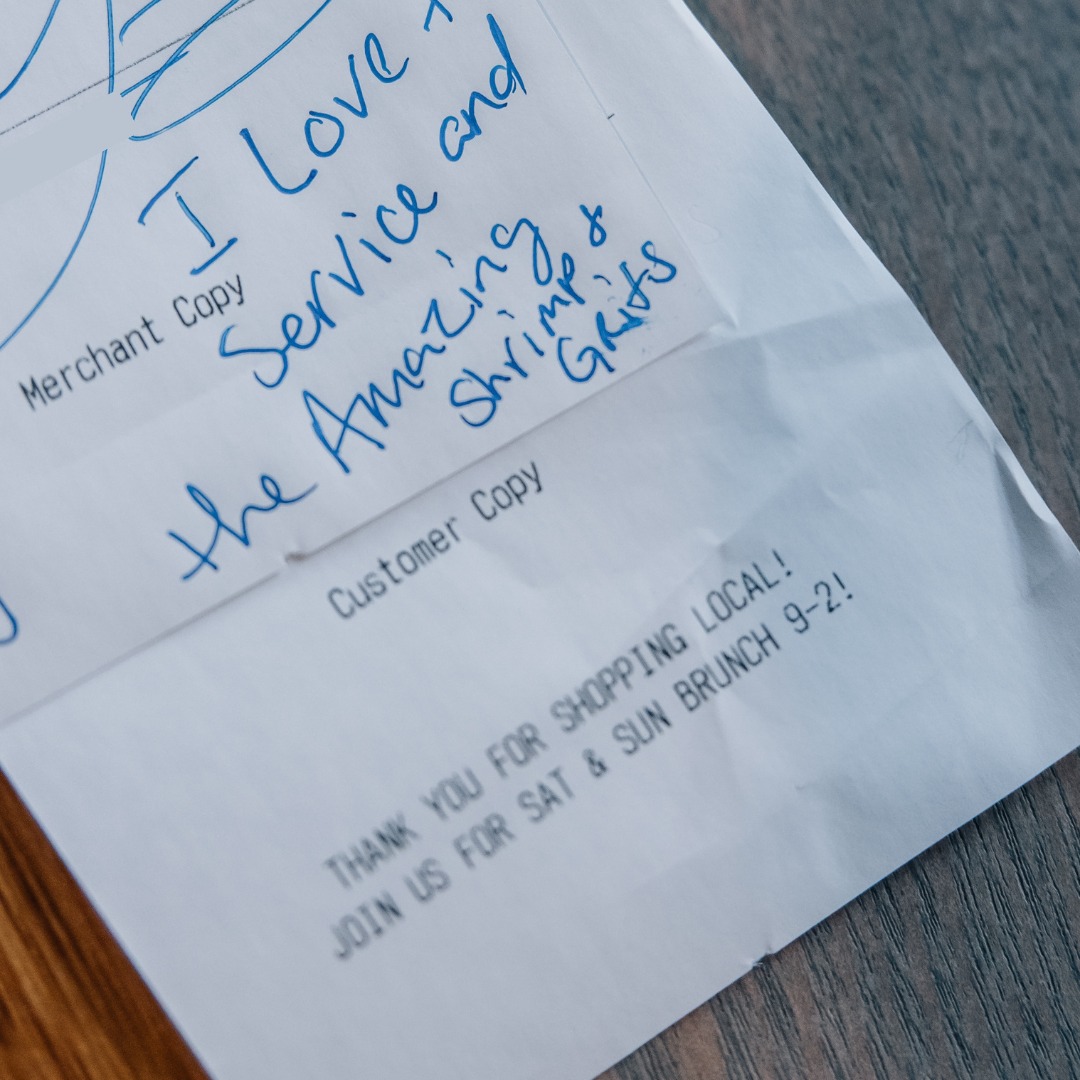 I Love
Service and
the Amazing
Shrimp &
Grits
Merchant Copy
Customer Copy
THANK YOU FOR SHOPPING LOCAL!
JOIN US FOR SAT & SUN BRUNCH 9-2!